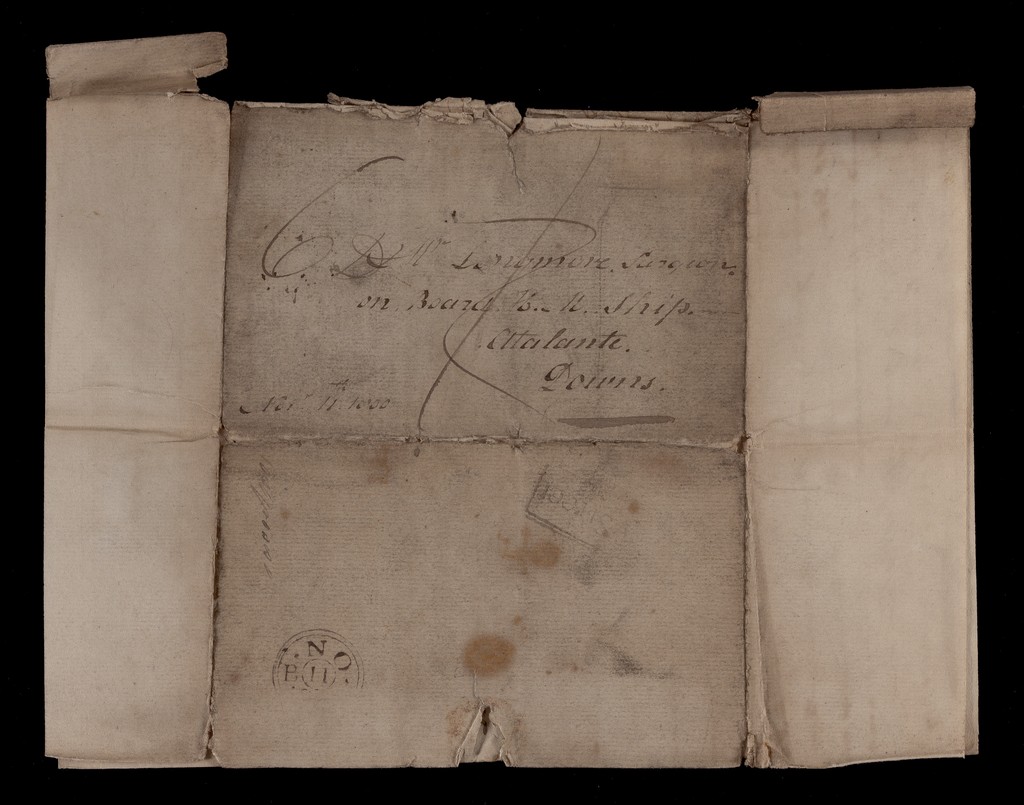 Dr Wm Longmore, Surgeon.
on Board H. M. Ship.
Atalante.
Downs.
Novr 11th 1800
NO
B 11